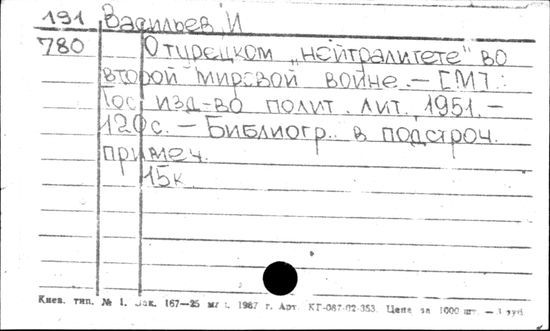 191 Васильев, И
780 О турецком „нейтралитете" во
второй мировой войне. — [М.] :
Гос изд-во полит. лит., 1951. —
120с. — Библиогр. в подстроч.
примеч.
15к
Киев. тип. № 1. Зак. 167—25 1987 г. Арт. КГ-087-02-353. Цена за 1000 шт. — 3 руб